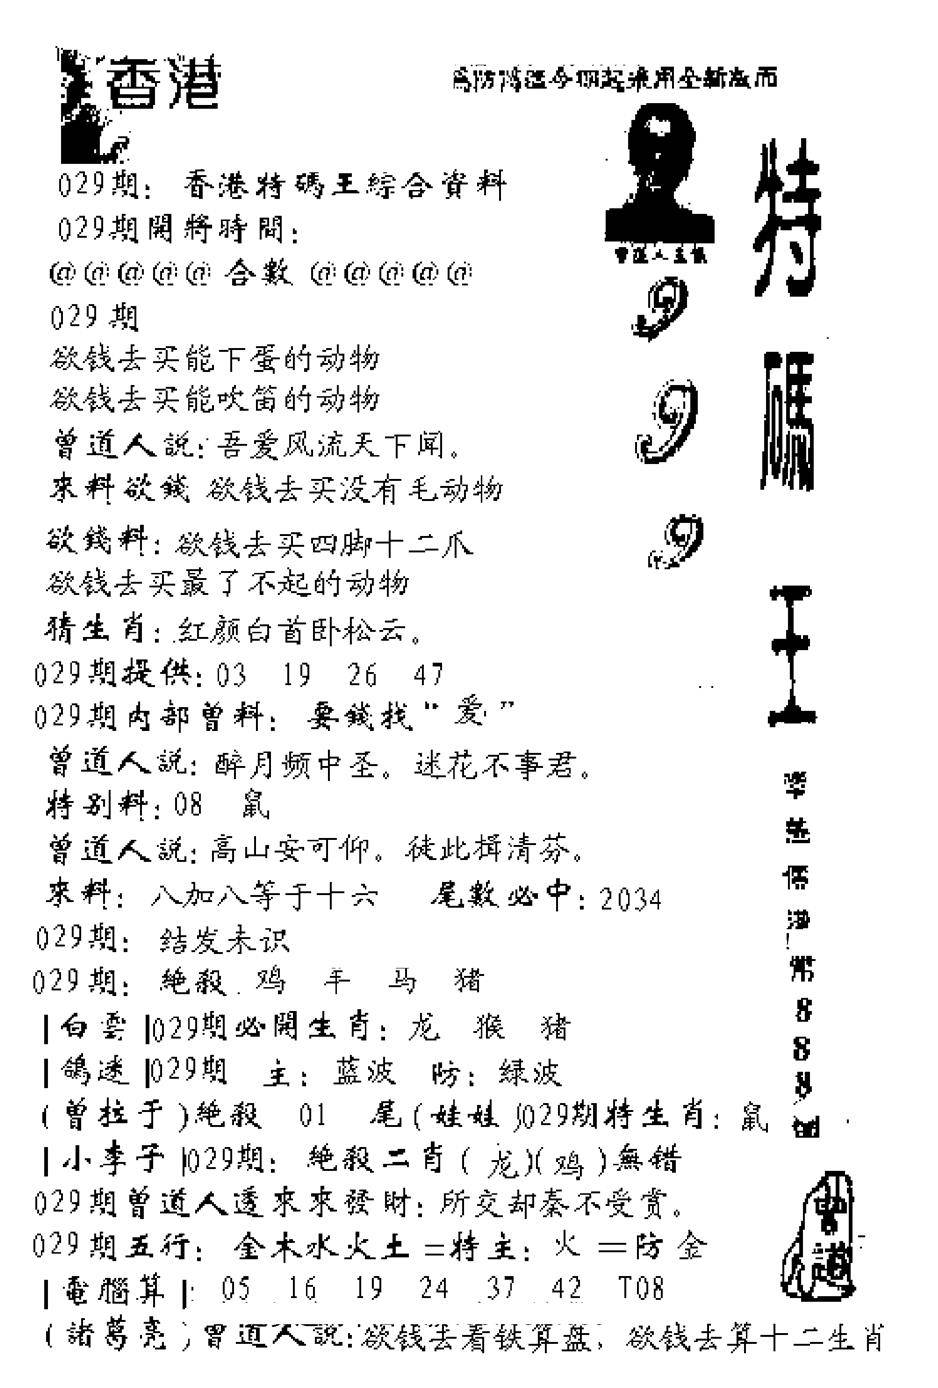 香港
為防偽造今期起采用全新版面
029期: 香港特碼王綜合資料
029期開將時間:
@@@@@合數@@@@@
029期
欲钱去买能下蛋的动物
欲钱去买能吹笛的动物
曾道人説:吾爱风流天下闻。
來料欲錢 欲钱去买没有毛动物
欲錢料:欲钱去买四脚十二爪
欲钱去买最了不起的动物
猜生肖:红颜白首卧松云。
029期提供:03 19 26 47
029期内部曾料: 要錢找“爱”
曾道人説:醉月频中圣。迷花不事君。
特别料:08 鼠
曾道人説:高山安可仰。徒此揖清芬。
來料: 八加八等于十六 尾數必中:2034
029期: 结发未识
029期: 絶殺 鸡 羊 马 猪
|白雲|029期必開生肖: 龙 猴 猪
|鴿迷|029期 主: 蓝波 防: 绿波
(曾拉于)絶殺 01 尾(娃娃)029期特生肖: 鼠
|小李子|029期: 絶殺二肖(龙)(鸡)無错
029期曾道人透來來發財:所交却秦不受赏。
029期五行: 金木水火土=特主: 火 =防金
|電腦算|: 05 16 19 24 37 42 T08
(諸葛亮)曾道人説:欲钱去看铁算盘,欲钱去算十二生肖
曾道人主儀
9
9
9
特碼王
港幣888
曾道